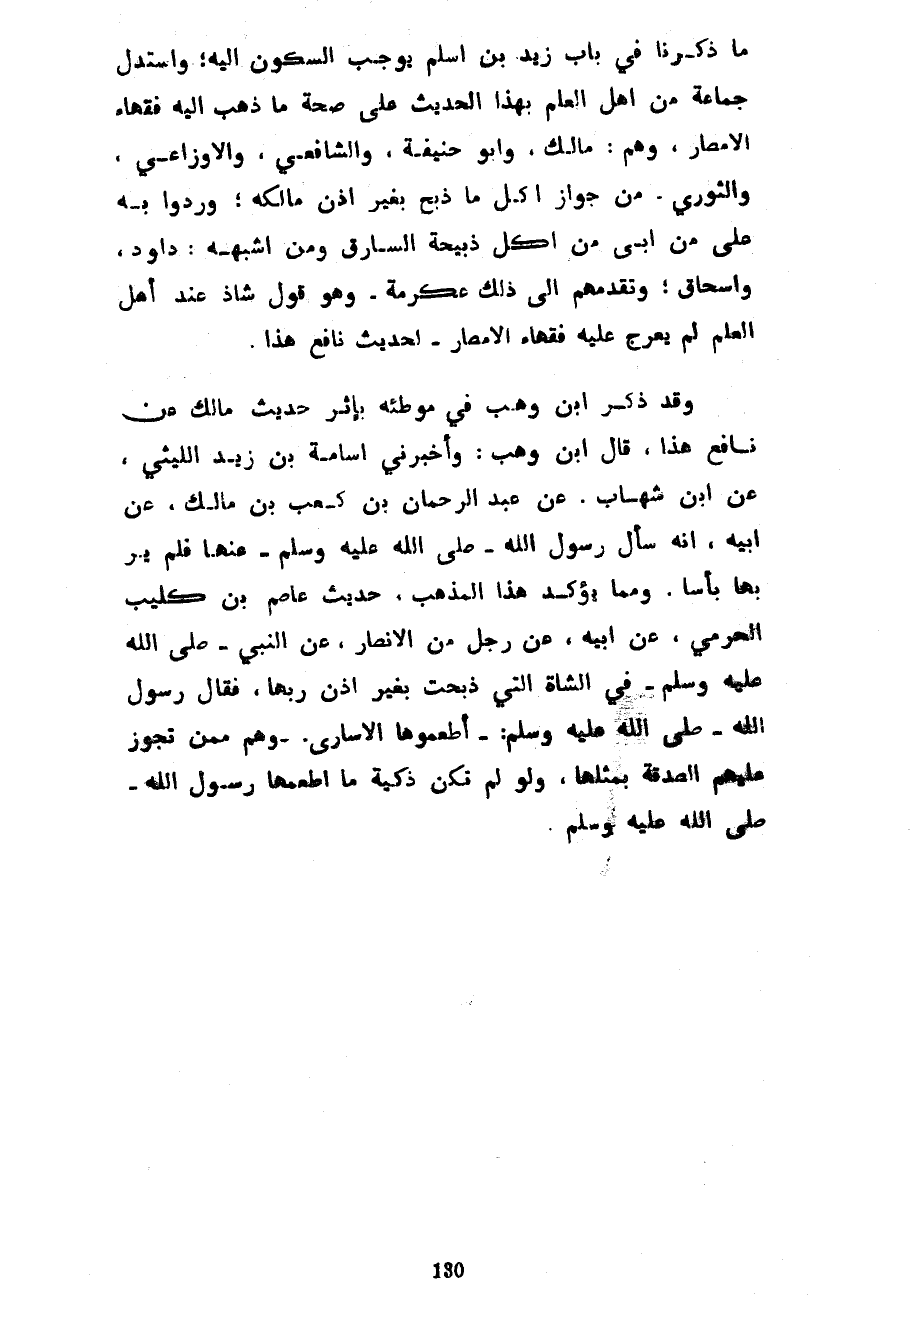 ما ذكرنا في باب زيد بن اسلم يوجب السكون اليه؛ واستدل
جماعة من اهل العلم بهذا الحديث على صحة ما ذهب اليه فقهاء
الامصار ، وهم : مالك ، وابو حنيفة ، والشافعي ، والاوزاعي ،
والثوري - من جواز اكل ما ذبح بغير اذن مالكه ؛ وردوا به
على من ابى من اكل ذبيحة السارق ومن اشبهه : داود ،
واسحاق ؛ وتقدمهم الى ذلك عكرمة - وهو قول شاذ عند أهل
العلم لم يعرج عليه فقهاء الامصار - لحديث نافع هذا .
وقد ذكر ابن وهب في موطئه بإثر حديث مالك عن
نافع هذا ، قال ابن وهب : وأخبرني اسامة بن زيد الليثي ،
عن ابن شهاب . عن عبد الرحمان بن كعب بن مالك ، عن
ابيه ، انه سأل رسول الله - صلى الله عليه وسلم - عنها فلم ير
بها بأسا . ومما يؤكد هذا المذهب ، حديث عاصم بن كليب
الحرمي ، عن ابيه ، عن رجل من الانصار ، عن النبي - صلى الله
عليه وسلم - في الشاة التي ذبحت بغير اذن ربها ، فقال رسول
الله - صلى الله عليه وسلم: - أطعموها الاسارى. -وهم ممن تجوز
عليهم الصدقة بمثلها ، ولو لم تكن ذكية ما اطعمها رسول الله -
صلى الله عليه وسلم .
130